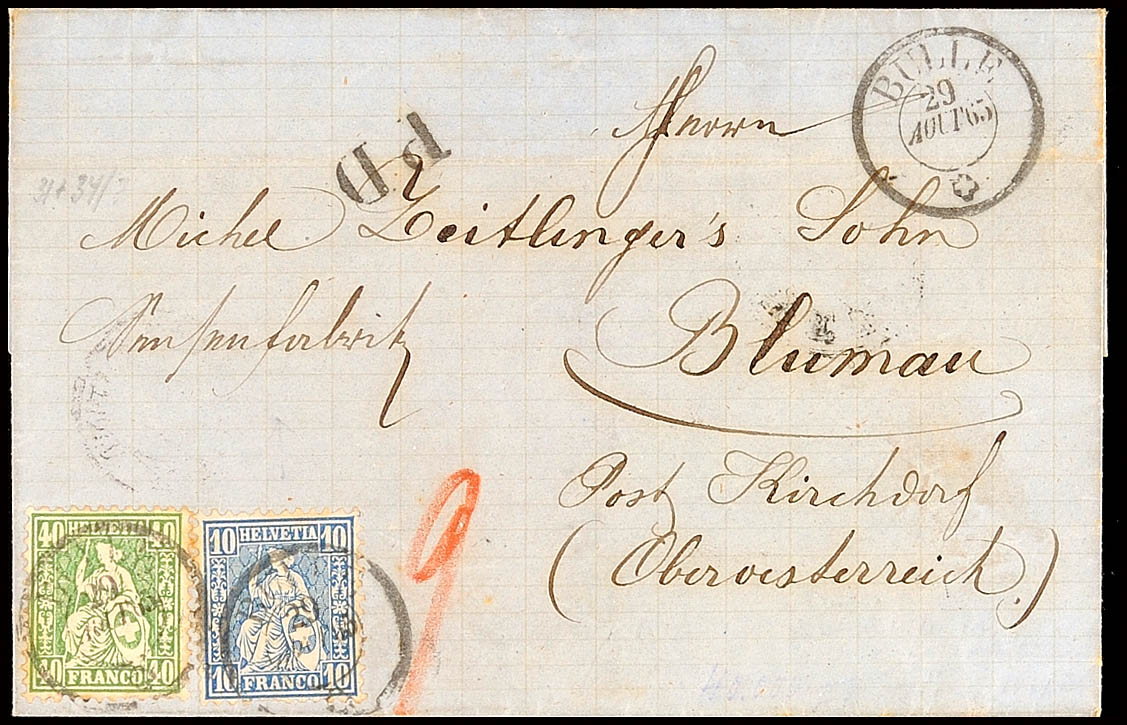 BULLE
29
AOUT 65
PD
Herrn
31+34/
Michel Zeitlinger's Sohn
Sensenfabrik
Blumau
Post Kirchdorf
(Oberoesterreich.)
40 HELVETIA 40
40 FRANCO 40
10 HELVETIA 10
10 FRANCO 10